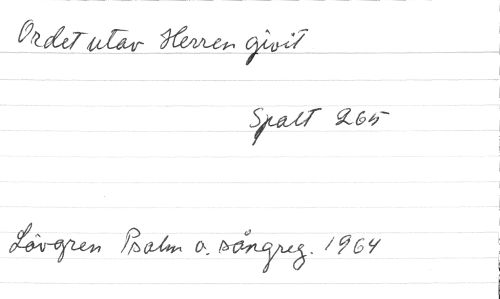 Ordet utav Herren givit
Spalt 265
Lövgren Psalm o. sångreg. 1964